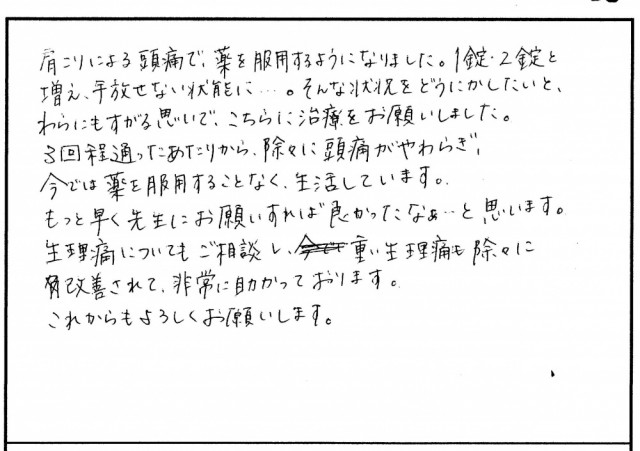 肩こりによる頭痛で、薬を服用するようになりました。1錠・2錠と
増え、手放せない状態に…。そんな状況をどうにかしたいと、
わらにもすがる思いで、こちらに治療をお願いしました。
3回程通ったあたりから、除々に頭痛がやわらぎ、
今では薬を服用することなく、生活しています。
もっと早く先生にお願いすれば良かったなぁ…と思います。
生理痛についてもご相談し、重い生理痛も除々に
改善されて、非常に助かっております。
これからもよろしくお願いします。